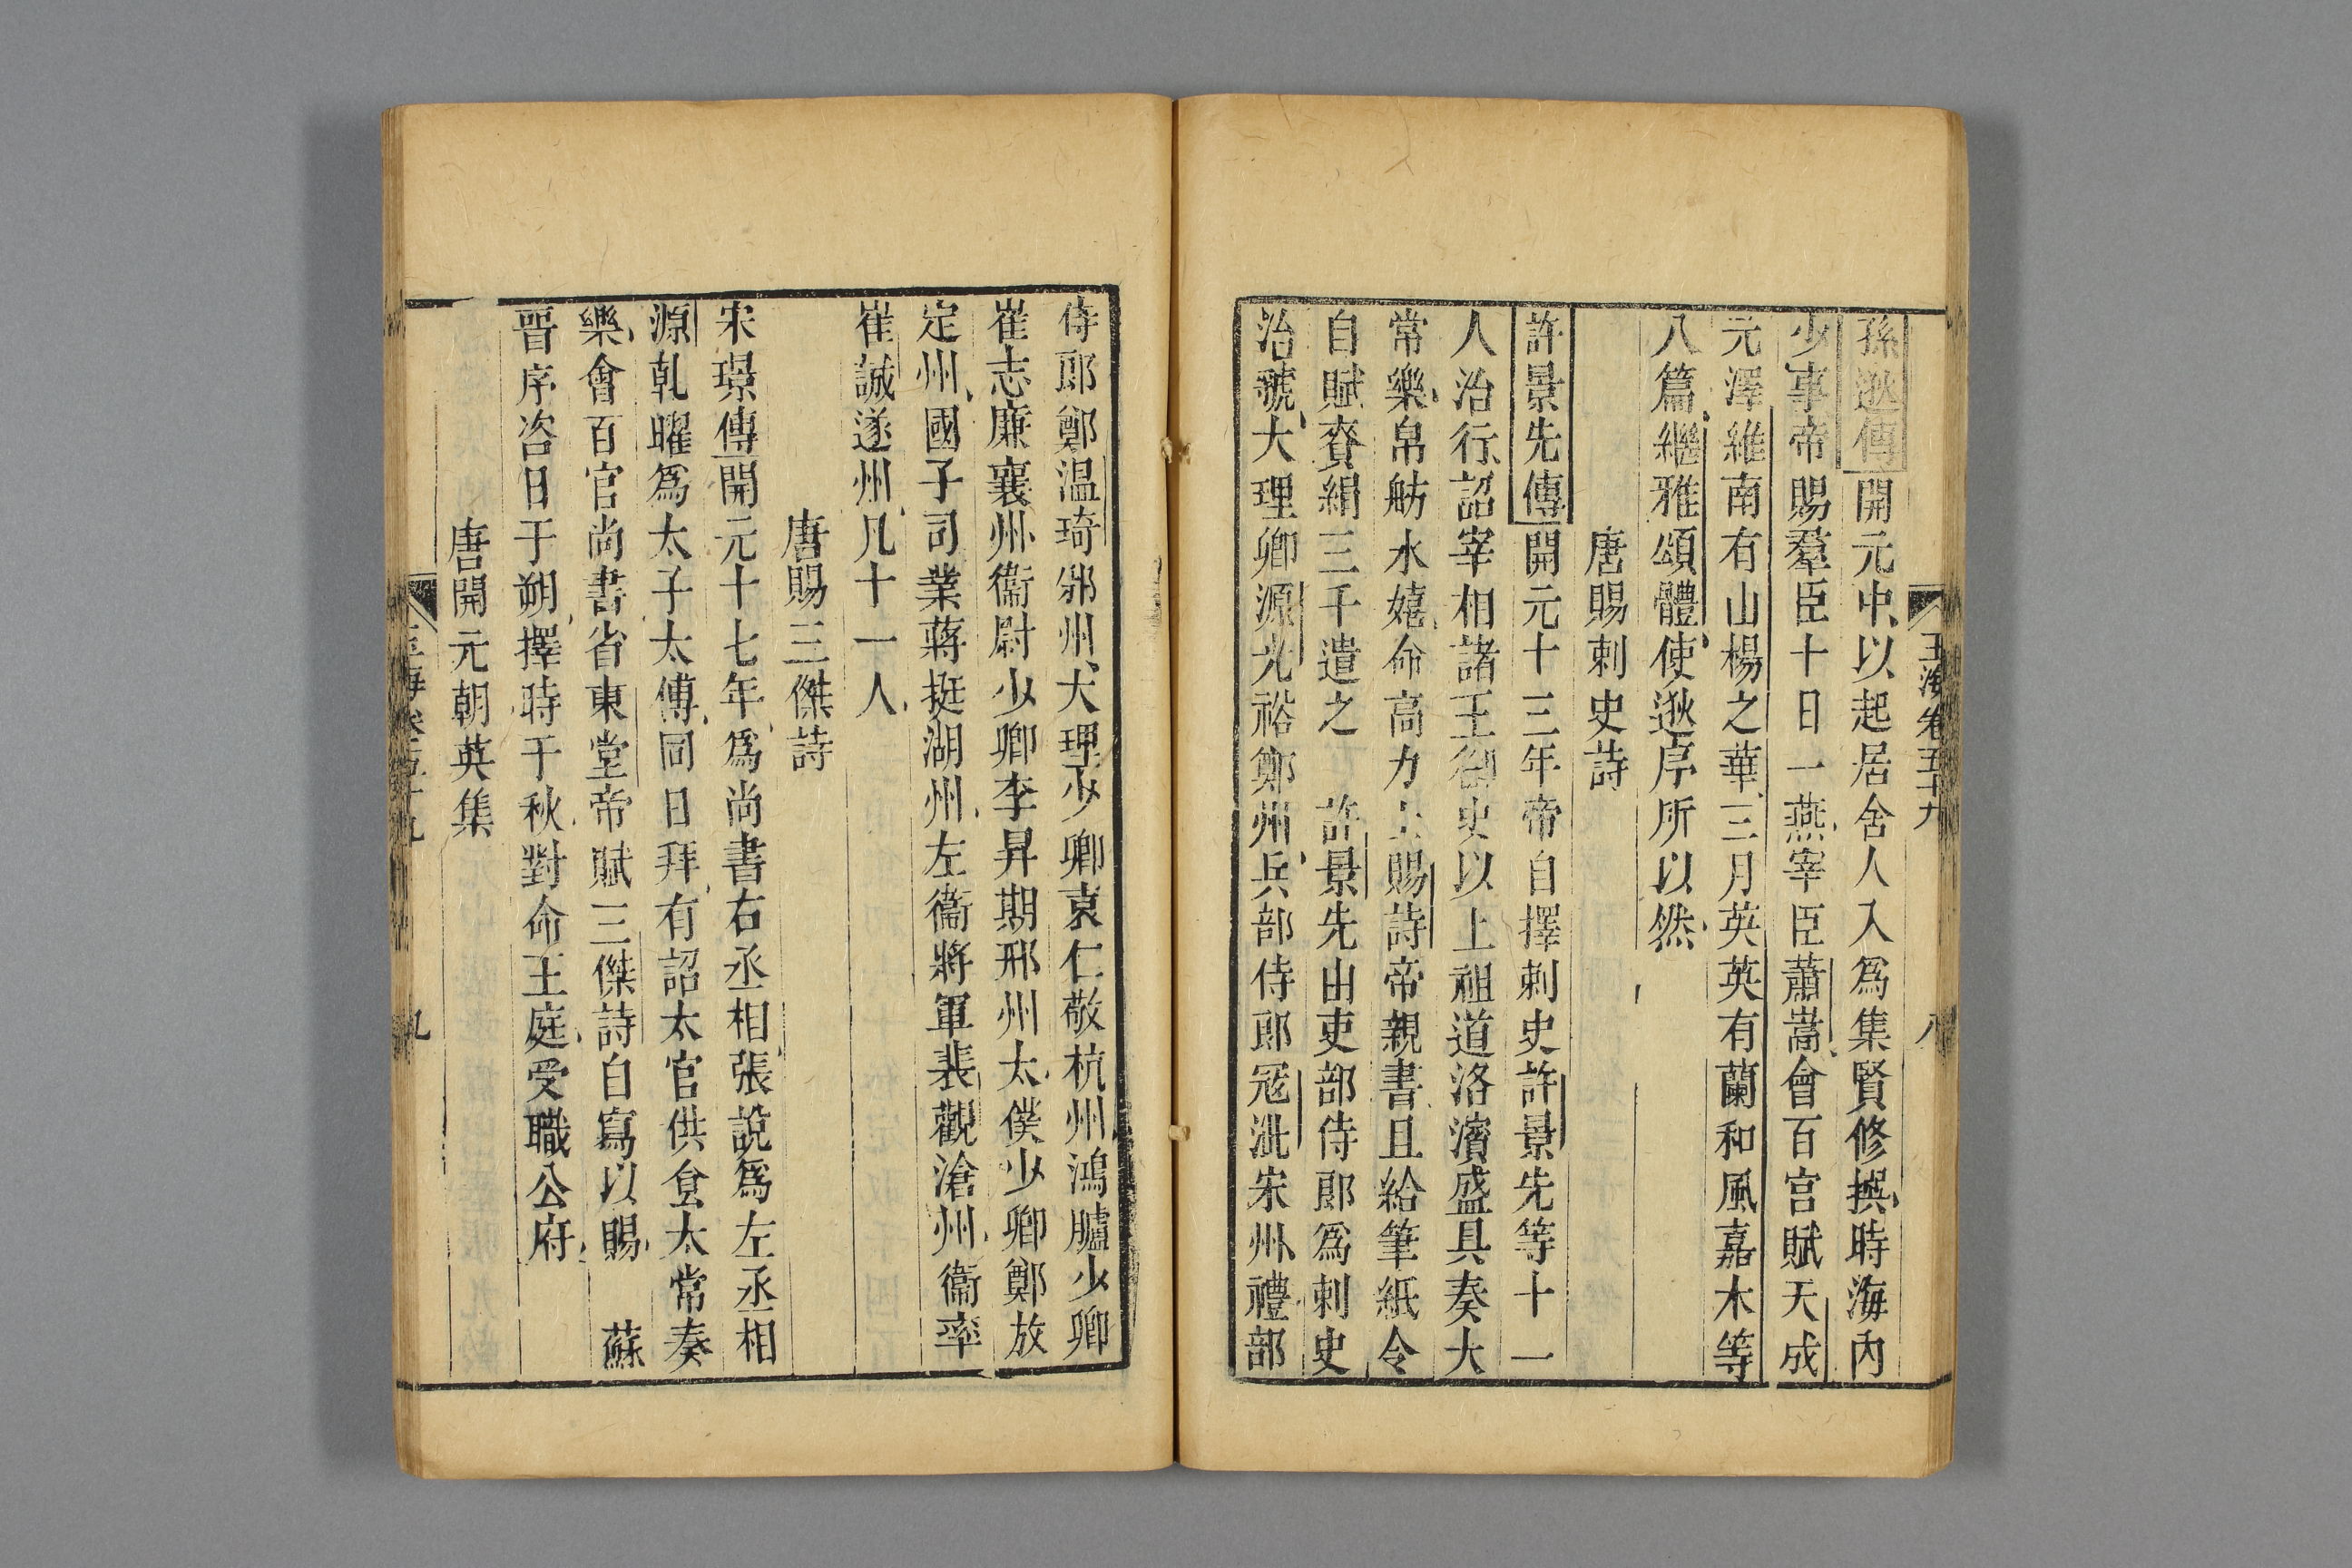 玉海卷五十九
八
孫逖傳開元中以起居舍人入爲集賢修撰時海內
少事帝賜羣臣十日一燕宰臣蕭嵩會百官賦天成
元澤維南有山楊之華三月英英有蘭和風嘉木等
八篇繼雅頌體使逖序所以然
唐賜刺史詩
許景先傳開元十三年帝自擇刺史許景先等十一
人治行詔宰相諸王御史以上祖道洛濱盛具奏大
常樂帛舫水嬉命高力士賜詩帝親書且給筆紙令
自賦賚絹三千遣之 許景先由吏部侍郎爲刺史
治虢大理卿源光裕鄭州兵部侍郎冦泚宋州禮部
侍郎鄭温琦邠州大理少卿袁仁敬杭州鴻臚少卿
崔志廉襄州衞尉少卿李昇期邢州太僕少卿鄭放
定州國子司業蔣挺湖州左衞將軍裴觀滄州衞率
崔誠遂州凡十一人
唐賜三傑詩
宋璟傳開元十七年爲尚書右丞相張說爲左丞相
源乾曜爲太子太傅同日拜有詔太官供食太常奏
樂會百官尚書省東堂帝賦三傑詩自寫以賜 蘇
晉序咨日于朔擇時于秋對命王庭受職公府
唐開元朝英集
玉海卷五十九
九